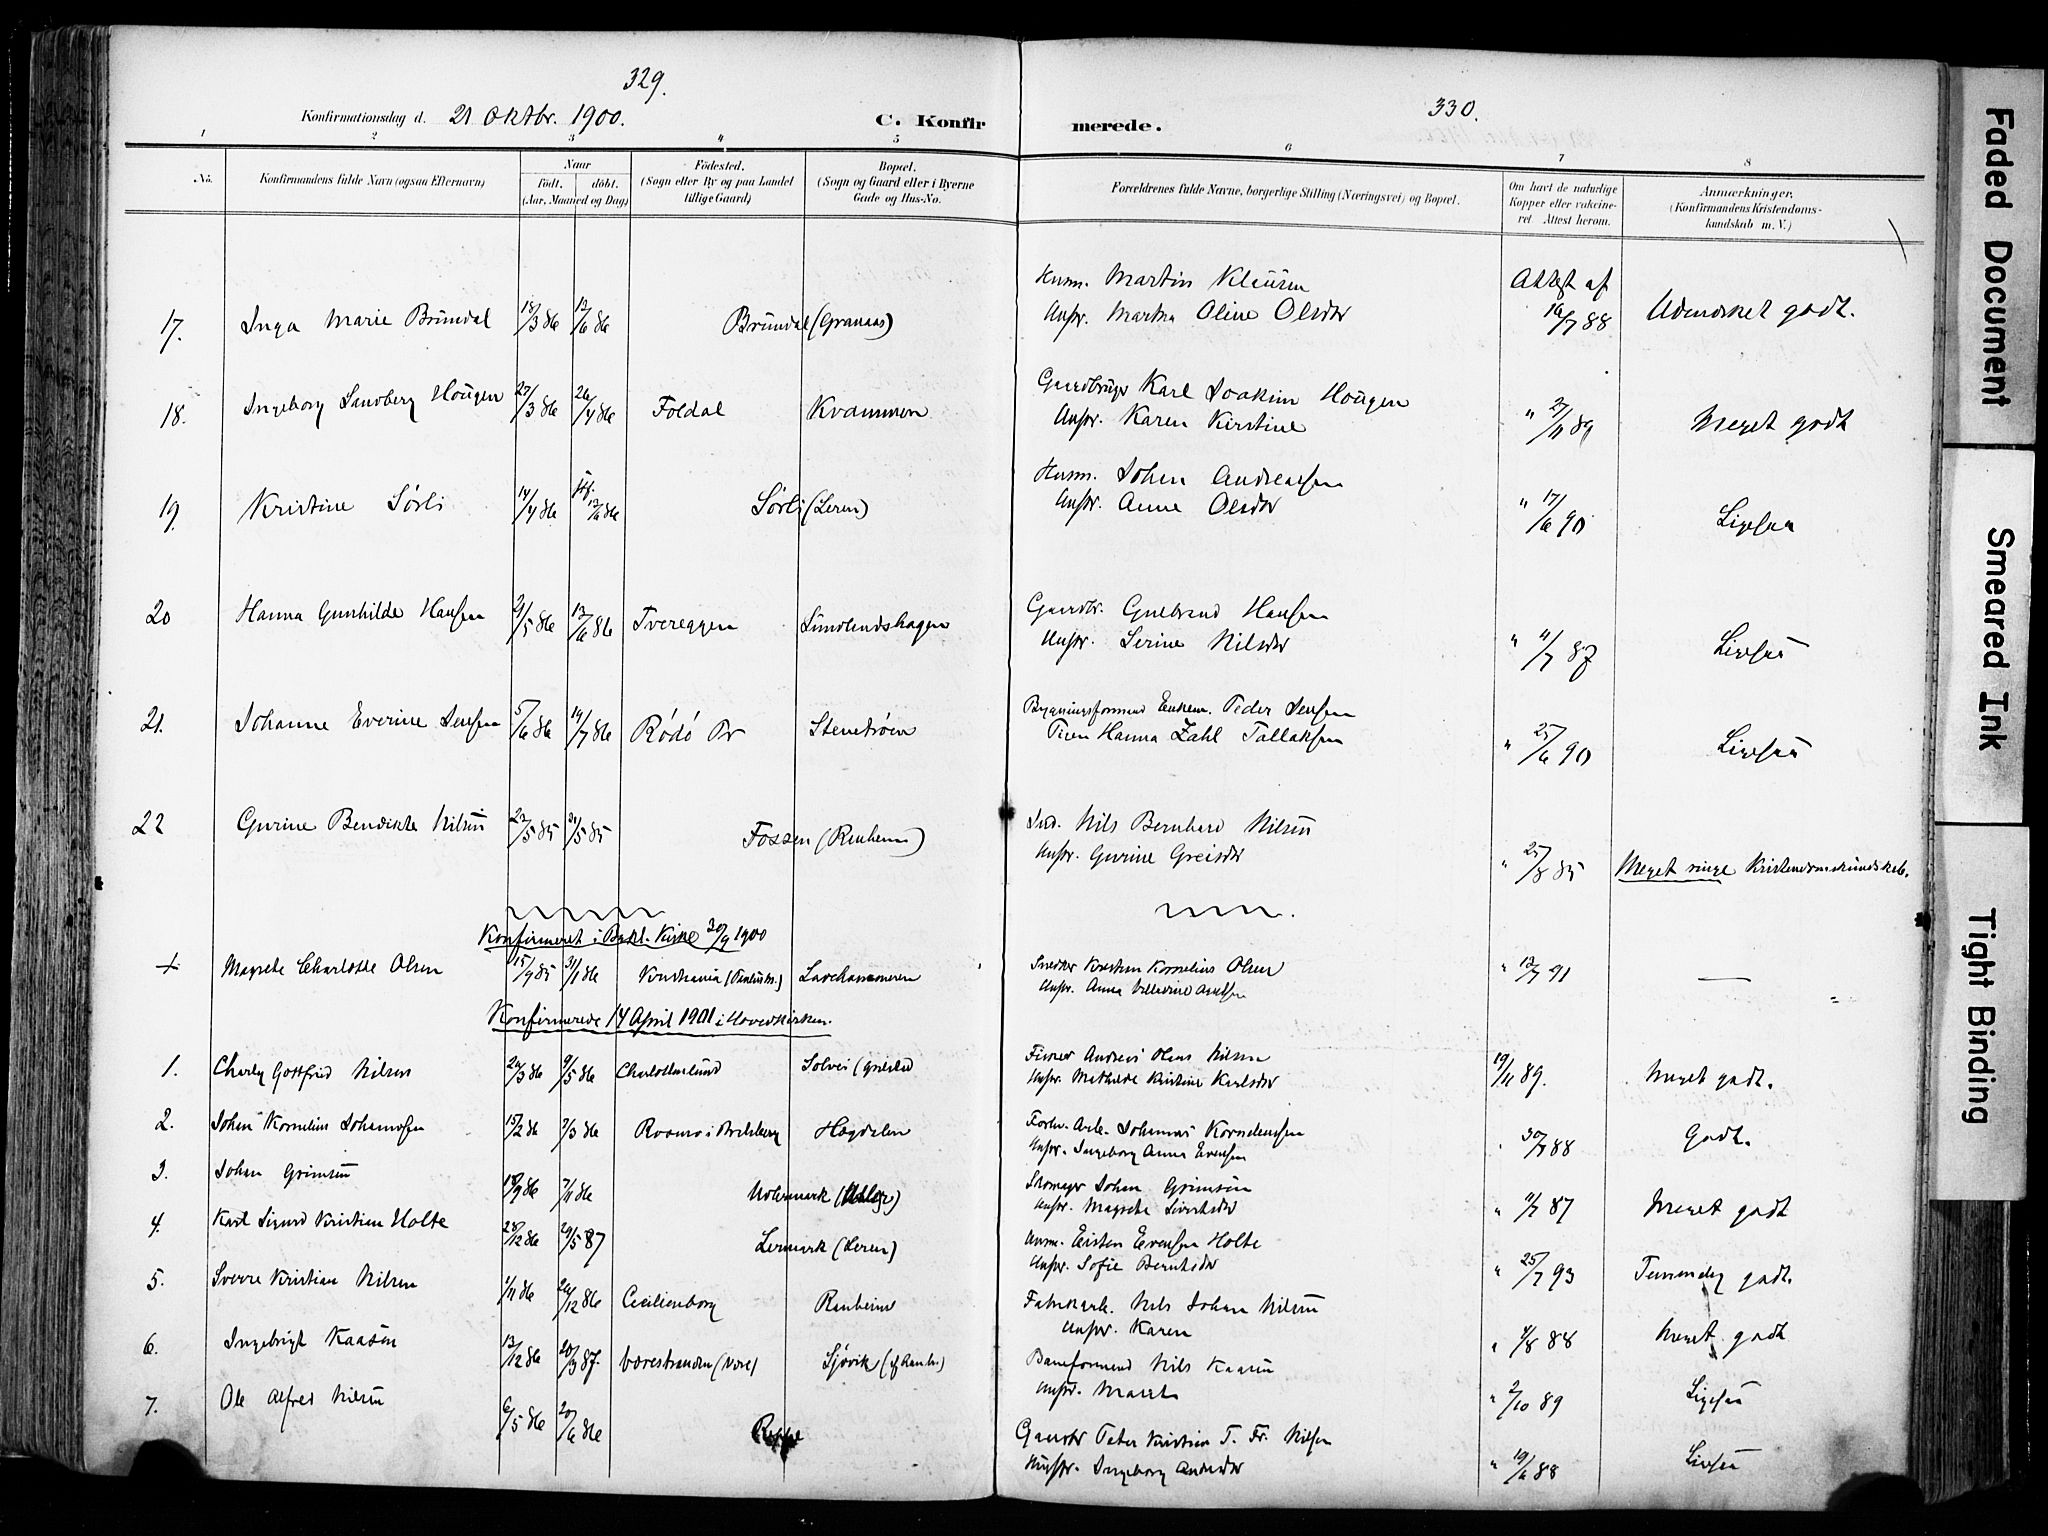 329.
330.
Konfirmationsdag d. 21 Oktbr. 1900.
C. Konfirmerede.
1 2 3 4 5 6 7 8
No.
Konfirmandens fulde Navn (ogsaa Efternavn)
Naar
født. døbt.
(Aar, Maaned og Dag)
Fødested.
(Sogn eller By og paa Landet
tillige Gaard)
Bopæl.
(Sogn og Gaard eller i Byerne
Gade og Hus-No.
Forældrenes fulde Navne, borgerlige Stilling (Næringsvei) og Bopæl.
Om havt de naturlige
Kopper eller vakcine-
ret. Attest herom.
Anmærkninger.
(Konfirmandens Kristendoms-
kundskab m. V.)
17. Inga Marie Brundal 18/3 86 12/6 86 Brundal (Granaas)
Husm. Martin
Husfr. Martha Oline Olsdtr
Attest af
16/7 88 Udmærket godt.
18. Ingeborg Sandberg Hougen 27/3 86 26/4 86 Foldal Kvammen
Gaardbruger Karl Joakim Hougen
Husfr. Karen Kirstine
" 27/11 89 Meget godt
19. Kristine Sørli 14/4 86 Hjf. 12/6 86 Sørli (Leren)
Husm. Johan Andreassen
Husfr. Anne Olsdtr
" 17/6 90 Ligesaa
20 Hanna Gunhilde Hansen 9/5 86 13/6 86 Tvereggen
Gaardbr. Gulbrand Hansen
Husfr. Serine Nilsdtr
" 11/7 87 Ligesaa
21. Johanne Everine Jensen 5/6 86 14/7 86 Rödö Pr
Bygningsformand Enkem. Peder Jensen
Hanna Zahl Tollaksen
" 25/6 90 Ligesaa
22 Gurine Bendikte Nilsen 22/5 85 31/5 85 Fossen (Ranheim)
Ind. Nils Bernhard Nilsen
Husfr. Gurine Greisdtr
" 25/8 85 Meget ringe Kristendomskundskab.
Konfirmeret i Bakl. Kirke 30/9 1900
+ Magrete Charlotte Olsen 15/9 85 31/1 86
Snedker Kristian Kornelius Olsen
Husfr. Anna
" 12/7 91 —
Konfirmerede 14 April 1901 i Hovedkirken.
1. Charly Gottfried Nilsen 24/3 86 9/5 86 Charlottenlund
Andreas Olaus Nilsen
Husfr. Mathilde Kristine Karlsdtr
19/11 89. Meget godt.
2. Johan Kornelius Johannesen 15/2 86 7/3 86 Høgdalen
Johannes Korneliussen
Husfr. Ingeborg Anna Evensen
" 30/7 88 Godt.
3. Johan Grimsen 18/9 86 7/11 86
Skomager Johan Grimsen
Husfr. Magrete Sivertsdtr
" 11/7 87 Meget godt
4. Karl Sigurd Kristian Holte 28/12 86 29/5 87 Lermark (Leren)
Husm. Eisten Evensen Holte
Husfr. Sofie Berntsdtr
" 25/7 93 Temmelig godt.
5. Sverre Kristian Nilsen 1/11 86 26/12 86 Cecilienborg Ranheim
Fabrikarb. Nils Johan Nilsen
Husfr. Karen
" 4/8 88 Meget godt
6. Ingebrigt Kaasen 13/12 86 20/3 87. Vorestranden (Vore) Sjøvik
Baneformand Nils Kaasen
Husfr. Maret
" 2/10 89 Ligesaa
7. Ole Alfred Nilsen 6/5 86 20/6 86 Reppe
Gaardbr Peter Kristian T. Fr. Nilsen
Husfr. Ingeborg Andersdtr
" 19/6 88 Ligesaa
Faded Document
Smeared Ink
Tight Binding